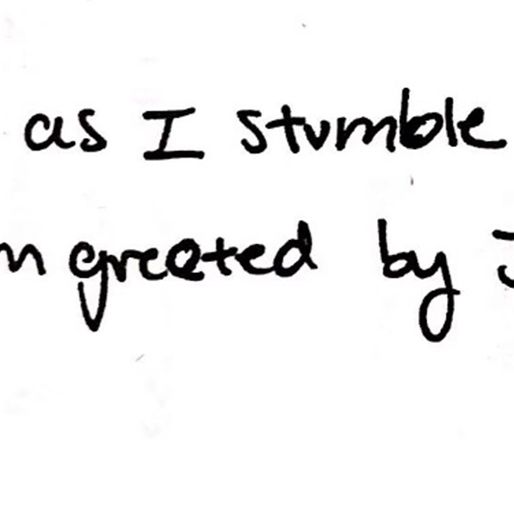 as I stumble
m greeted by